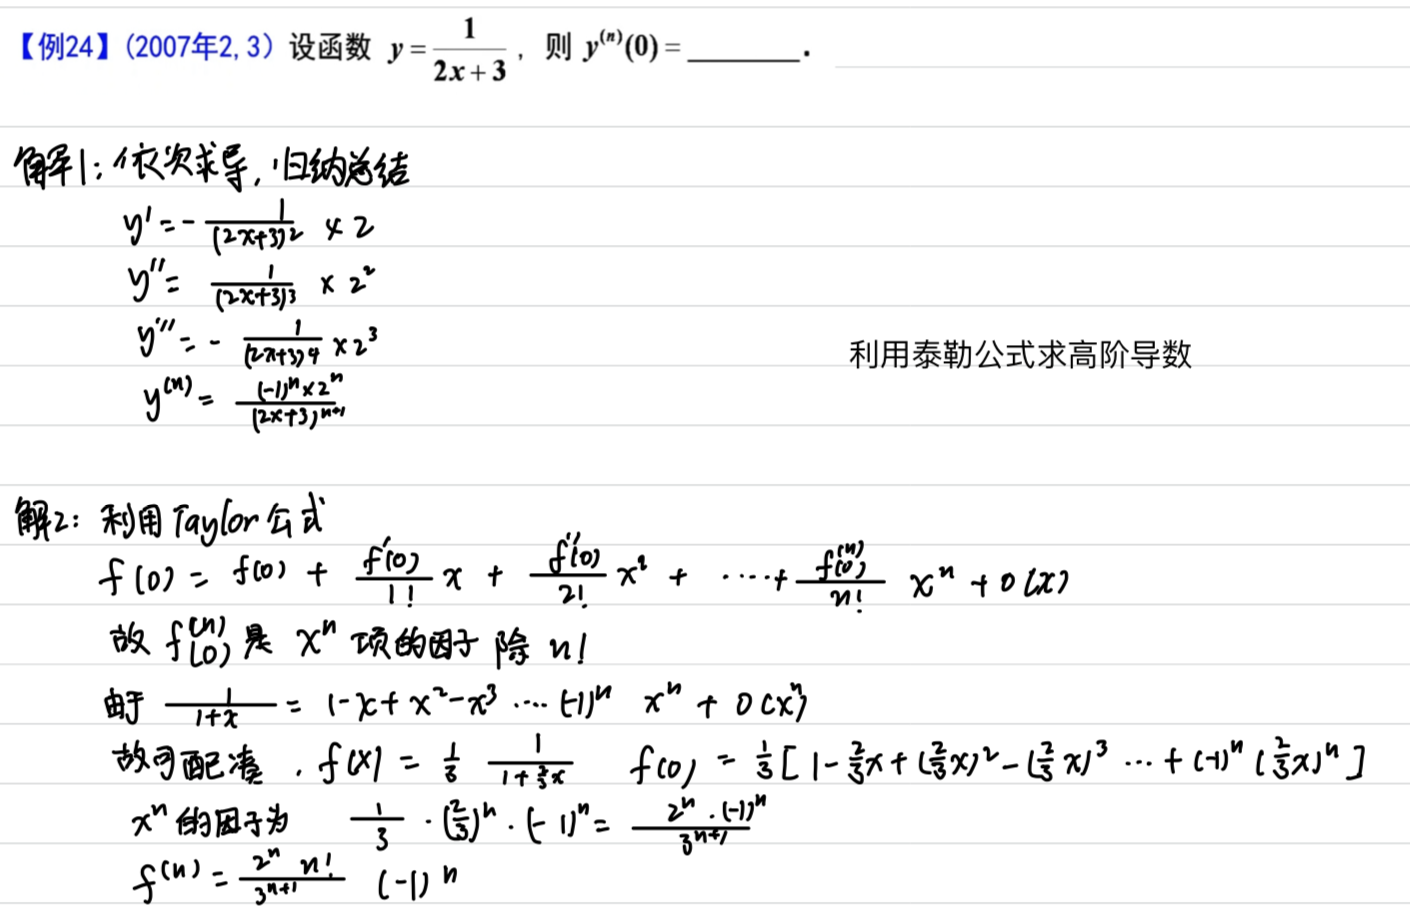 【例24】(2007年2,3) 设函数 y = \frac{1}{2x+3}, 则 y^{(n)}(0) = ________.
解1: 依次求导, 归纳总结
y' = - \frac{1}{(2x+3)^2} × 2
y'' = \frac{1}{(2x+3)^3} × 2^2
y''' = - \frac{1}{(2x+3)^4} × 2^3
利用泰勒公式求高阶导数
y^{(n)} = \frac{(-1)^n × 2^n}{(2x+3)^{n+1}}
解2: 利用 Taylor 公式
f(0) = f(0) + \frac{f'(0)}{1!} x + \frac{f''(0)}{2!} x^2 + ····+ \frac{f^{(n)}(0)}{n!} x^n + o(x)
故 f^{(n)}(0) 是 x^n 项的因子 除 n!
由于 \frac{1}{1+x} = 1-x+x^2-x^3 ···· (-1)^n x^n + o(x^n)
故可配凑. f(x) = \frac{1}{3} \frac{1}{1+\frac{2}{3}x} f(0) = \frac{1}{3} [1-\frac{2}{3}x+(\frac{2}{3}x)^2-(\frac{2}{3}x)^3 ··· + (-1)^n (\frac{2}{3}x)^n]
x^n 的因子为 \frac{1}{3} · (\frac{2}{3})^n · (-1)^n = \frac{2^n · (-1)^n}{3^{n+1}}
f^{(n)} = \frac{2^n n!}{3^{n+1}} (-1)^n